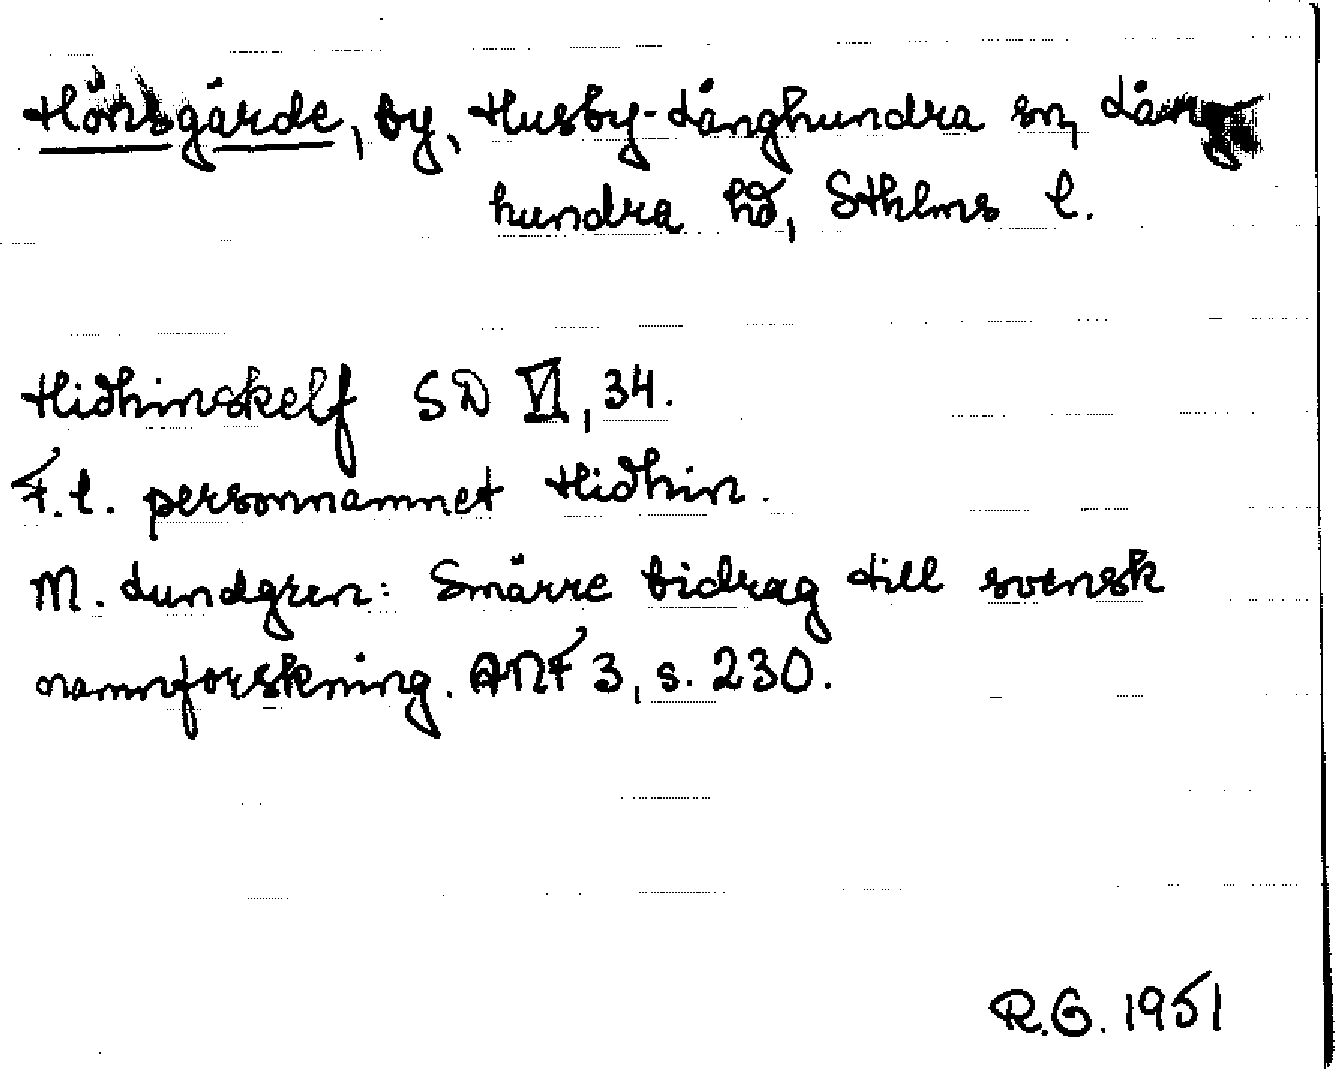 Hönsgärde, by, Husby-Långhundra sn, Lång
hundra hd, Sthlms l.
Hidhinskelf SD VI, 34.
F.l. personnamnet Hidhin.
M. Lundgren: Smärre bidrag till svensk
namnforskning. ANF 3, s. 230.
R.G. 1951